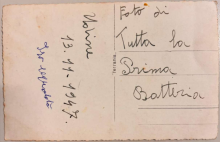 Foto di
Tutta la
Prima
Batteria
Udine
13.11-1947.